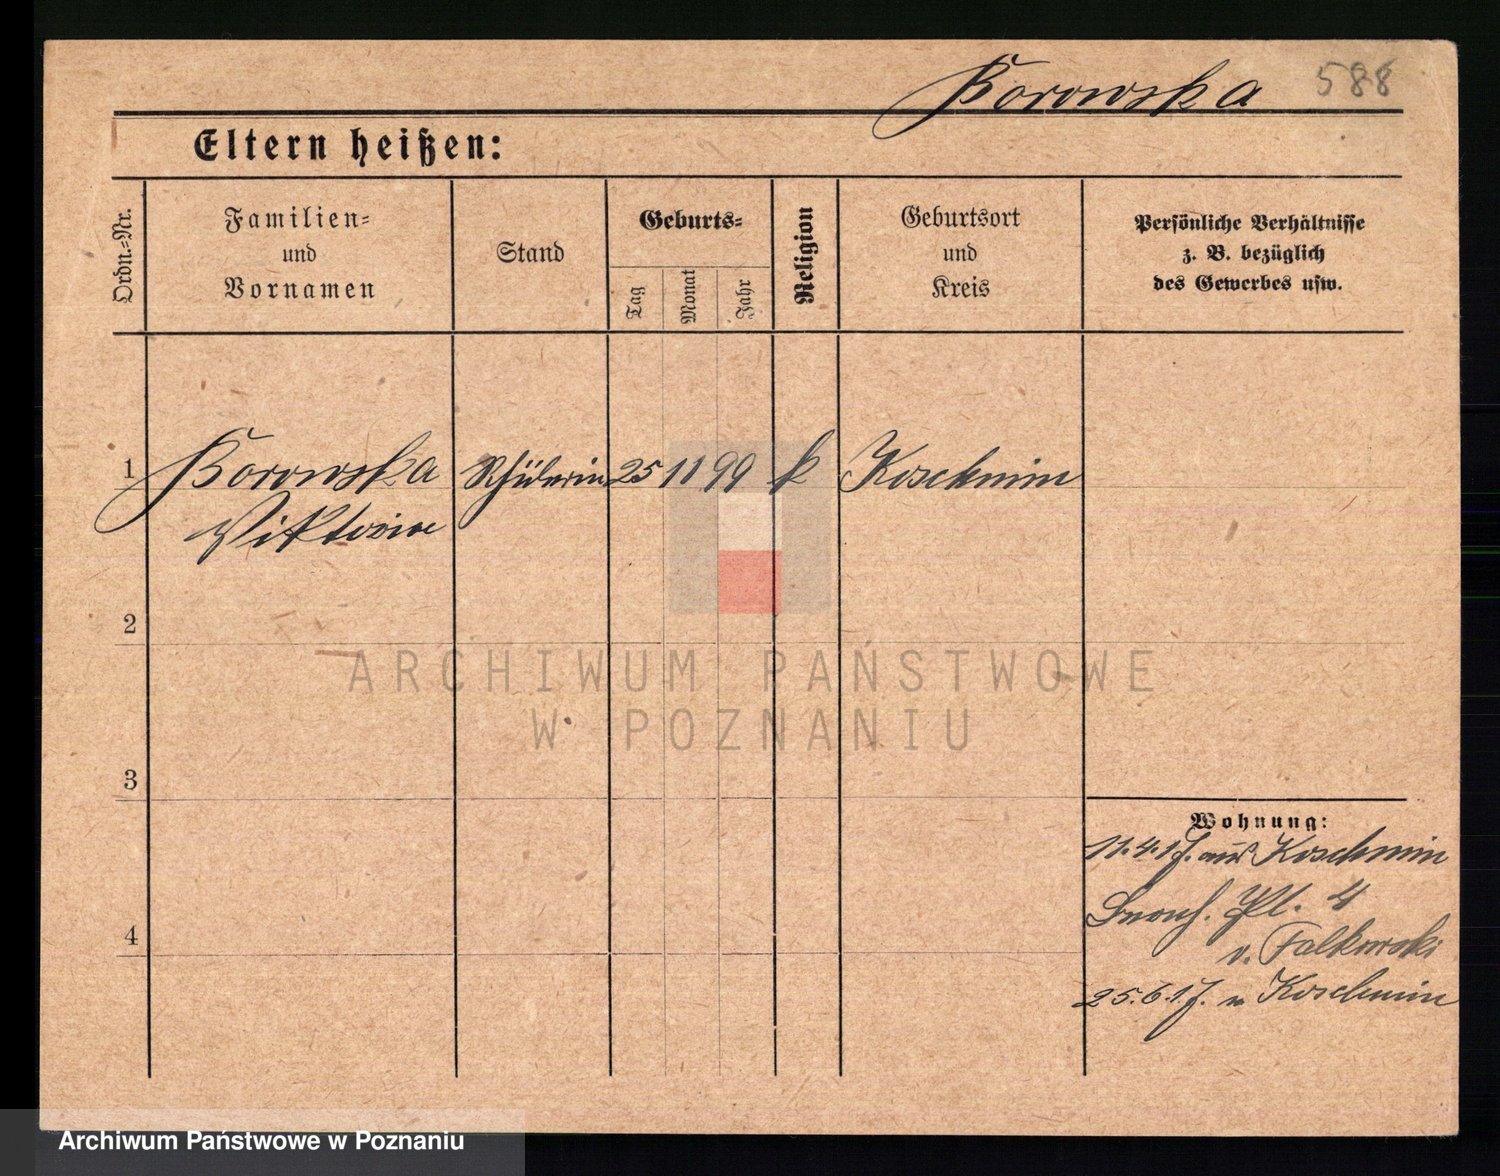 Borowska 588
Eltern heißen:
Ordn.=Nr.
Familien=
und
Vornamen
Stand
Geburts=
Tag
Monat
Jahr
Religion
Geburtsort
und
Kreis
Persönliche Verhältnisse
z. B. bezüglich
des Gewerbes usw.
1 Borowska Schülerin 25 11 99 k Koschmin
Viktoria
2
ARCHIWUM PAŃSTWOWE
W POZNANIU
3
Wohnung:
11.4.17. aus Koschmin
Pl. 4
4
v. Falkowski
25.6.17. n Koschmin
Archiwum Państwowe w Poznaniu